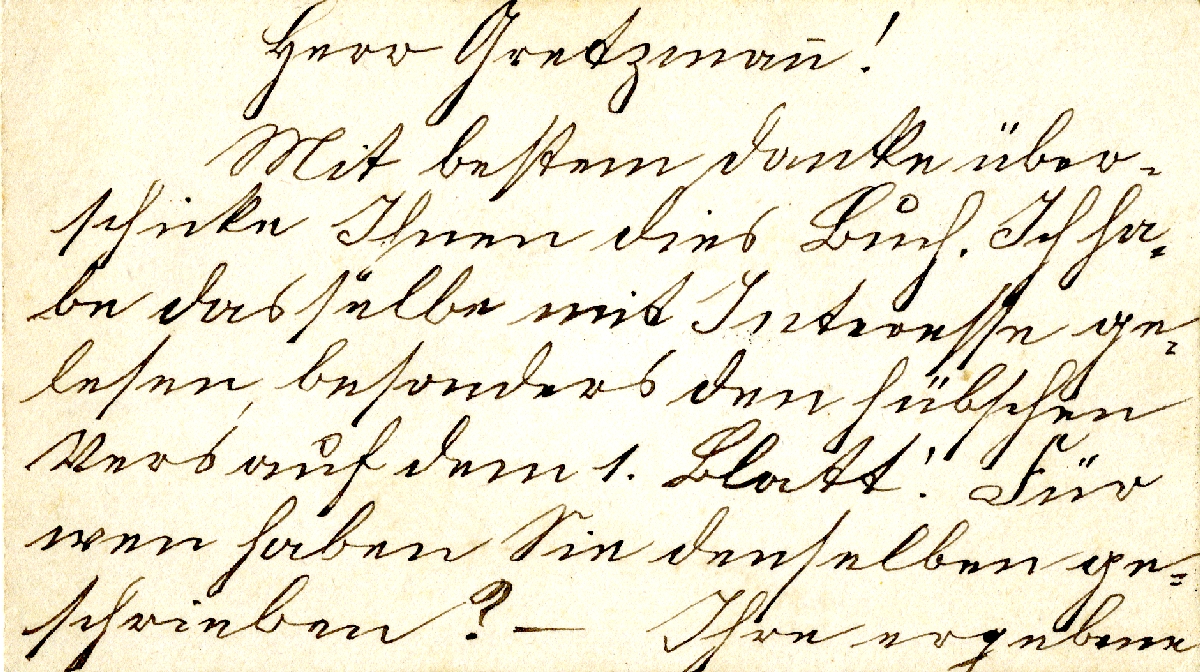 Herr Gretzmann̄!
Mit bestem Danke über-
schicke Ihnen dies Buch. Ich ha-
be dasselbe mit Interesse ge-
lesen, besonders den hübschen
Vers auf dem 1. Blatt! Für
wen haben Sie denselben ge-
schrieben? — Ihre ergebene